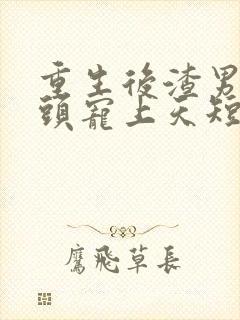 重生後渣男
頭寵上天短
鷹飛草長